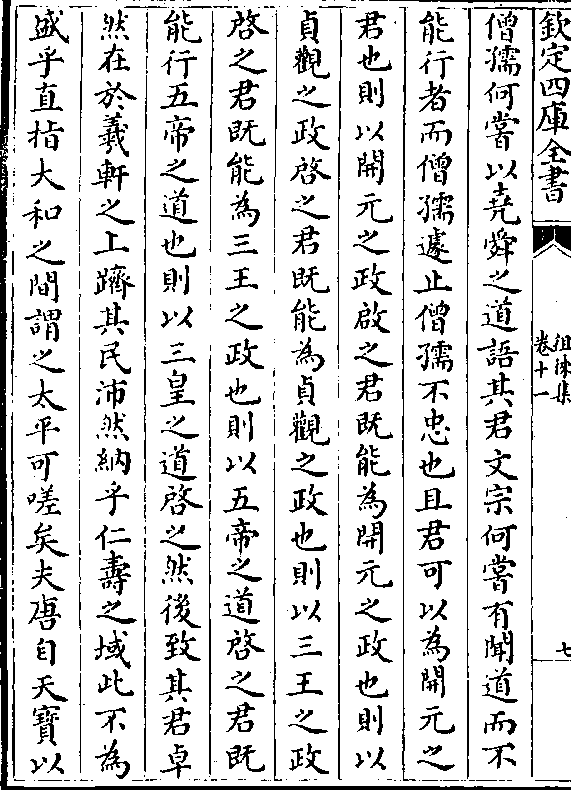 欽定四庫全書
徂徠集
卷十一
七
僧孺何嘗以堯舜之道語其君文宗何嘗有聞道而不
能行者而僧孺遽止僧孺不忠也且君可以為開元之
君也則以開元之政啟之君既能為開元之政也則以
貞觀之政啓之君既能為貞觀之政也則以三王之政
啓之君既能為三王之政也則以五帝之道啓之君既
能行五帝之道也則以三皇之道啓之然後致其君卓
然在於羲軒之上躋其民沛然納乎仁壽之域此不為
盛乎直指大和之間謂之太平可嗟矣夫唐自天寶以